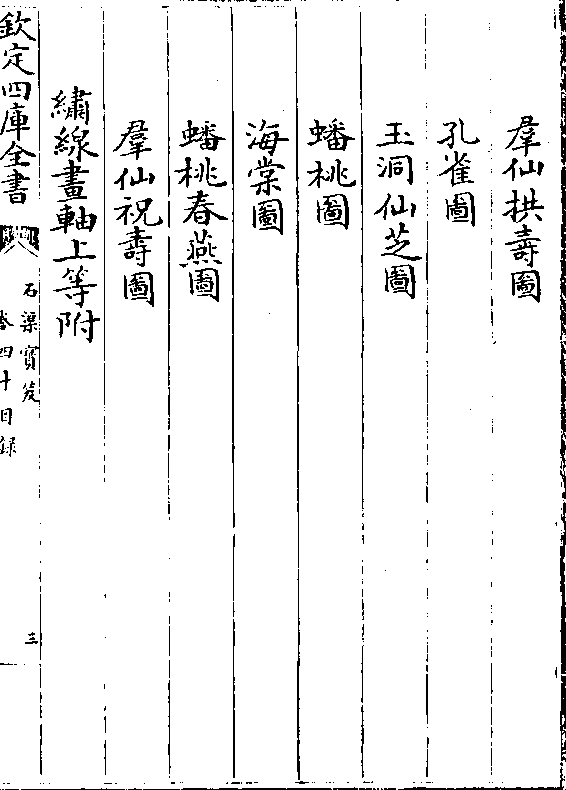 羣仙拱壽圖
孔雀圖
玉洞仙芝圖
蟠桃圖
海棠圖
蟠桃春燕圖
羣仙祝壽圖
繡線畫軸上等附
欽定四庫全書
石渠寶笈
卷四十目錄
三